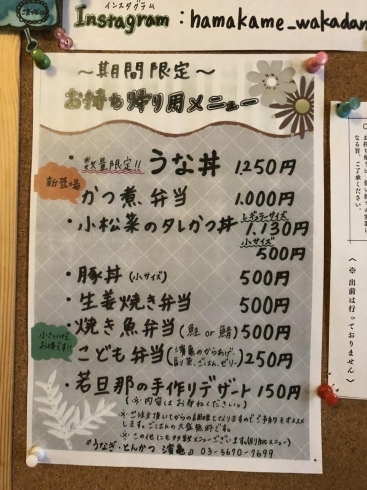 インスタグラム
Instagram：hamakame_wakadan
～期間限定～
お持ち帰り用メニュー
・数量限定!! うな丼 1250円
新登場
かつ煮、弁当 1.000円
・小松菜のタレかつ丼 レギュラーサイズ 1.130円
小サイズ 500円
・豚丼（小サイズ） 500円
・生姜焼き弁当 500円
・焼き魚弁当（鮭 or 鯖）500円
・こども弁当（濱亀のからあげ、副菜、ごはん、ゼリー）250円
・若旦那の手作りデザート 150円
（※内容はお尋ねください。）
※ご注文頂いてからの調理となりますのでご予約をオススメします。ごはんの大盛無料です。
※この他にも多数メニューございます。（別用紙メニュー）
『うなぎ・とんかつ 濱亀』 03-3670-7699
なる旨、ご了承ください。
〈※ 出前は行っておりません〉